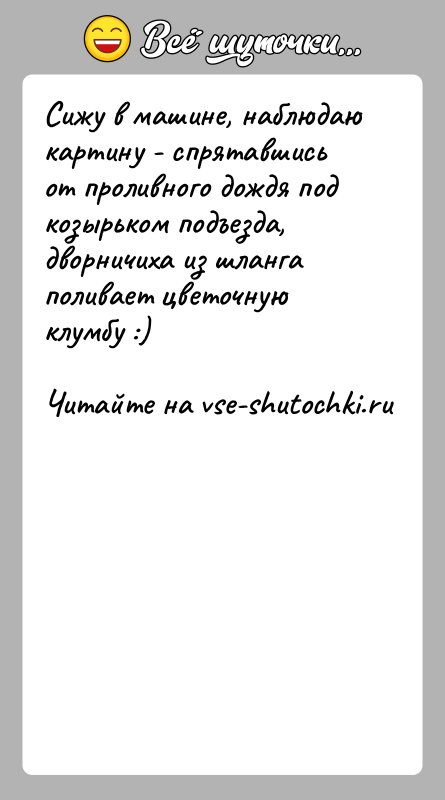 Всё шуточки...
Сижу в машине, наблюдаю
картину - спрятавшись
от проливного дождя под
козырьком подъезда,
дворничиха из шланга
поливает цветочную
клумбу :)
Читайте на vse-shutochki.ru